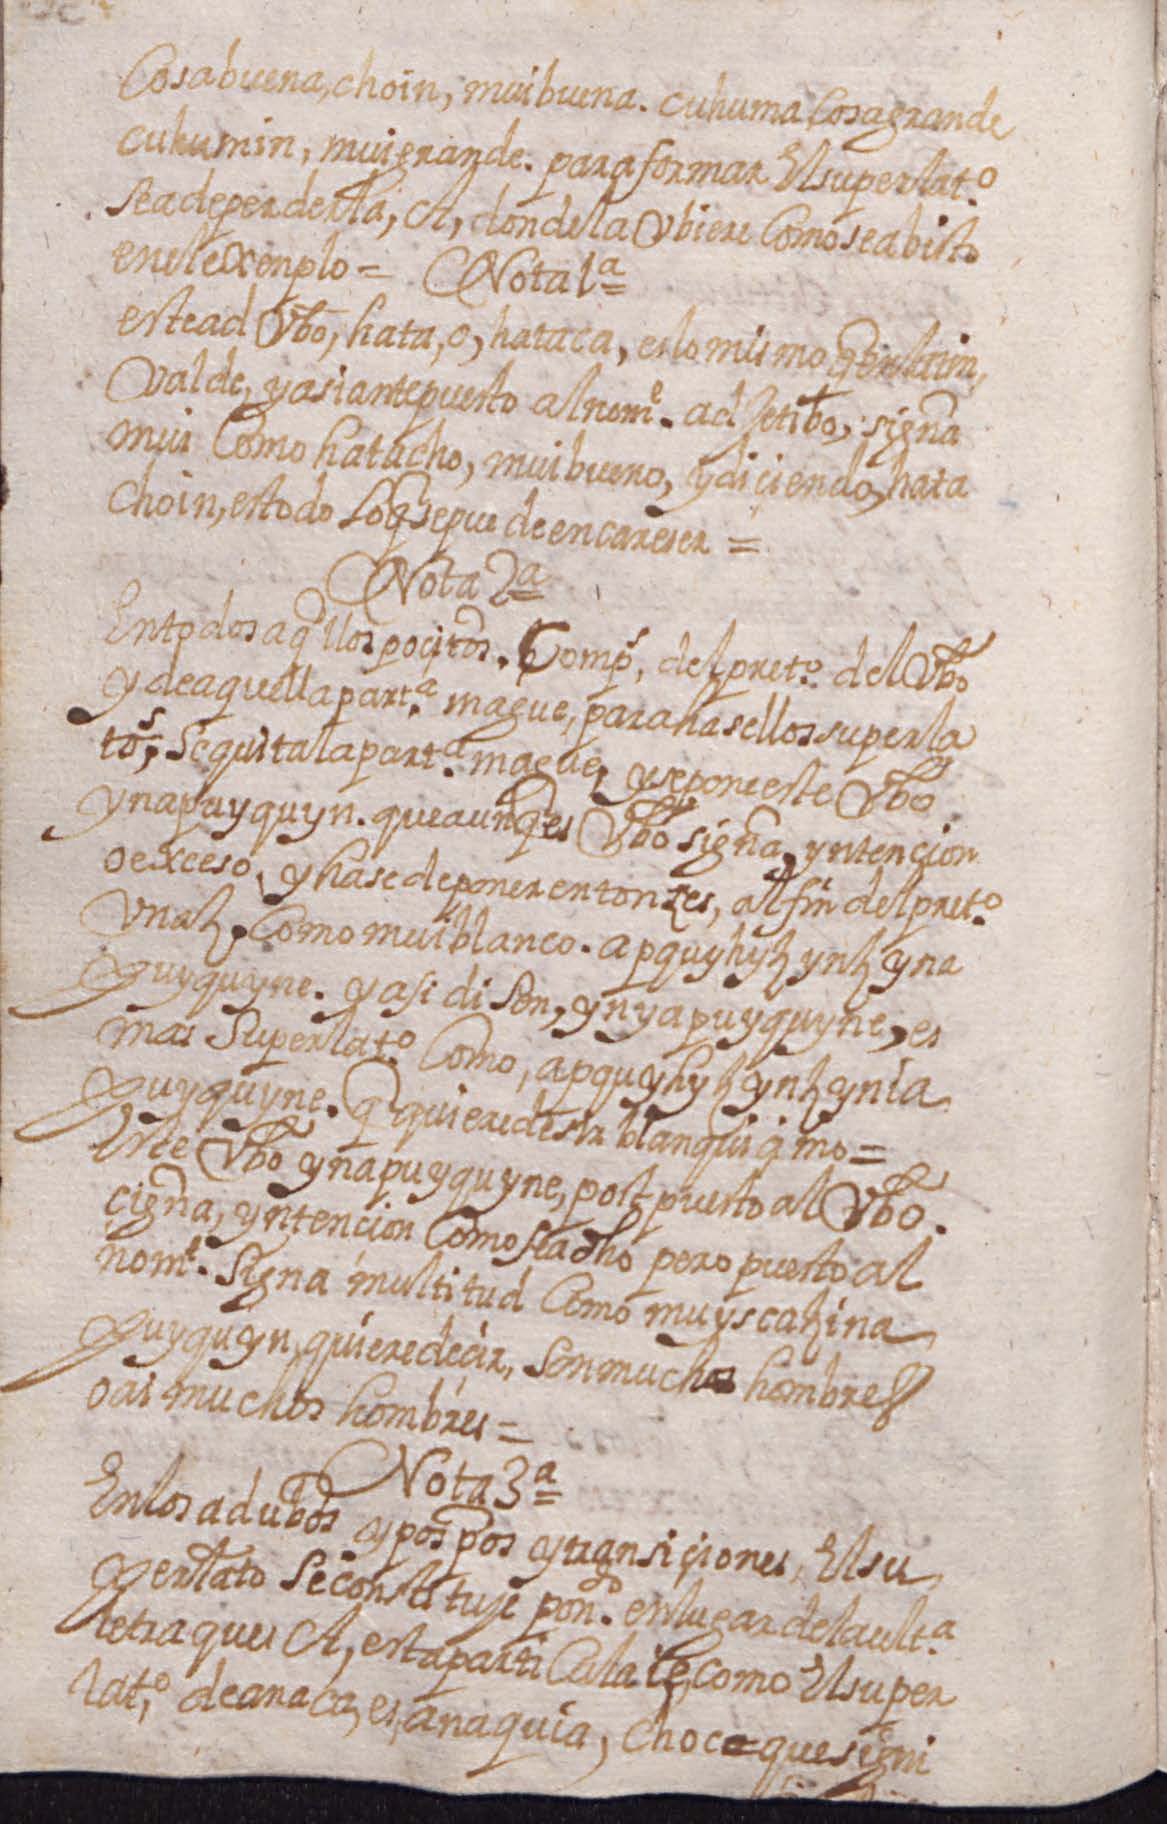 Cosa buena, choin, mui buena. cuhuma Cosa grande
cuhumin, mui grande. para formar El superlat.º
sea de perder la, A, donde la Vbiere Como sea bisto
en el exenplo = Nota 1ª
este ad Vbo, hata, o, hataca, es lo mismo q̃
Valde, y asi antepuesto al nomᵉ. adJetibo, signã
mui Como hatacho, mui bueno, y diçiendo, hata
choin, es todo Lo q̃ se puede encareser =
Nota 2ª
En todos aq̃llos pocitõs. Compˢ, del pretº. del Vbo
y de aquella partª. mague, para hasellos superla
tõˢ, Se quita la partª. mague, y se pone este Vbo
ynapuyquyn. que aunq̃ es Vbo signã, yntencion
o exceso, y hase de poner entonzes, al fin del pretº.
Vna ɥ, Como mui blanco. apquyhyɥ ynɥ yna
puyquyne. y asi diSen, ynyapuyquyne, es
mas Superlatº Como, apquyhyɥ ynɥ ynia
puyquyne. q̃ quiere desir blanquiçimo =
Este Vbo ynapuyquyne, post puesto al Vbo.
çignã, yntencion Como sea dho pero puesto al
nomᵉ. Signã multitud Como muyscaɥ ina
puyquyn, quiere deçir, Son muchos hombres
o ai muchos hombres =
Nota 3ª
En los adverbõs y pospos̃ y transiçiones, El su
perlato Se constituye ponᵈᵒ. en lugar de la ultª.
letra que es A, esta particula ie, como El super
latº. de anaca, es, anaquia, choca que signi